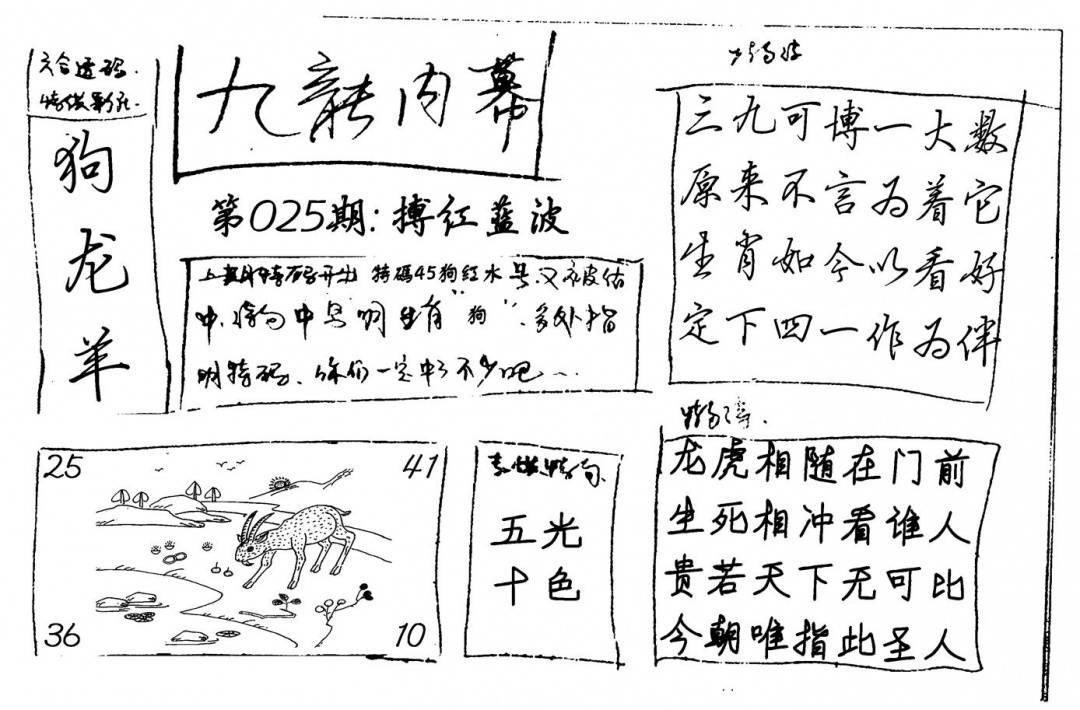 六合透码
狗
龙
羊
九龙内幕
第025期:搏红蓝波
特碼45狗红水号又被估
中,中号明生肖“狗”,多处指
明特码、你们一定中了不少吧…
三九可博一大数
原来不言为着它
生肖如今以看好
定下四一作为伴
25
41
36
10
五光
十色
龙虎相随在门前
生死相冲看谁人
贵若天下无可比
今朝唯指此圣人